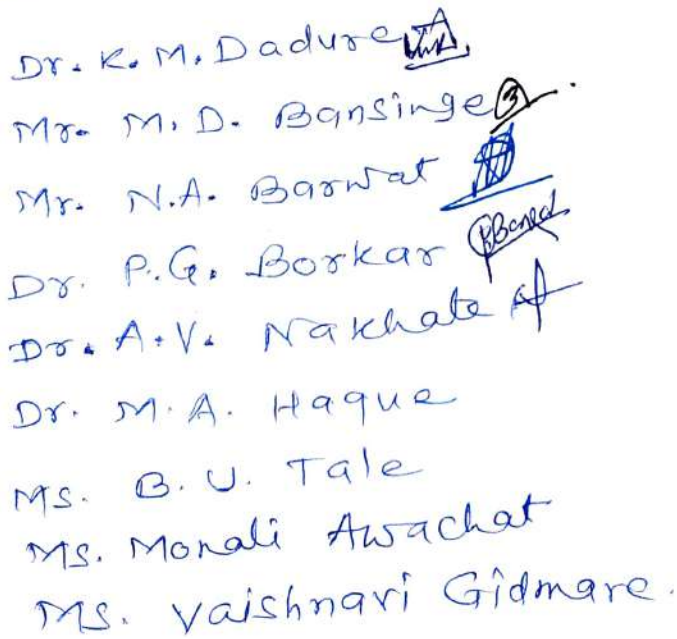 Dr. K. M. Dadure
Mr. M. D. Bansinge
Mr. N.A. Barwat
Dr. P.G. Borkar
Dr. A.V. Nakhate
Dr. M.A. Haque
Ms. B.U. Tale
Ms. Monali Awachat
Ms. Vaishnavi Gidmare.